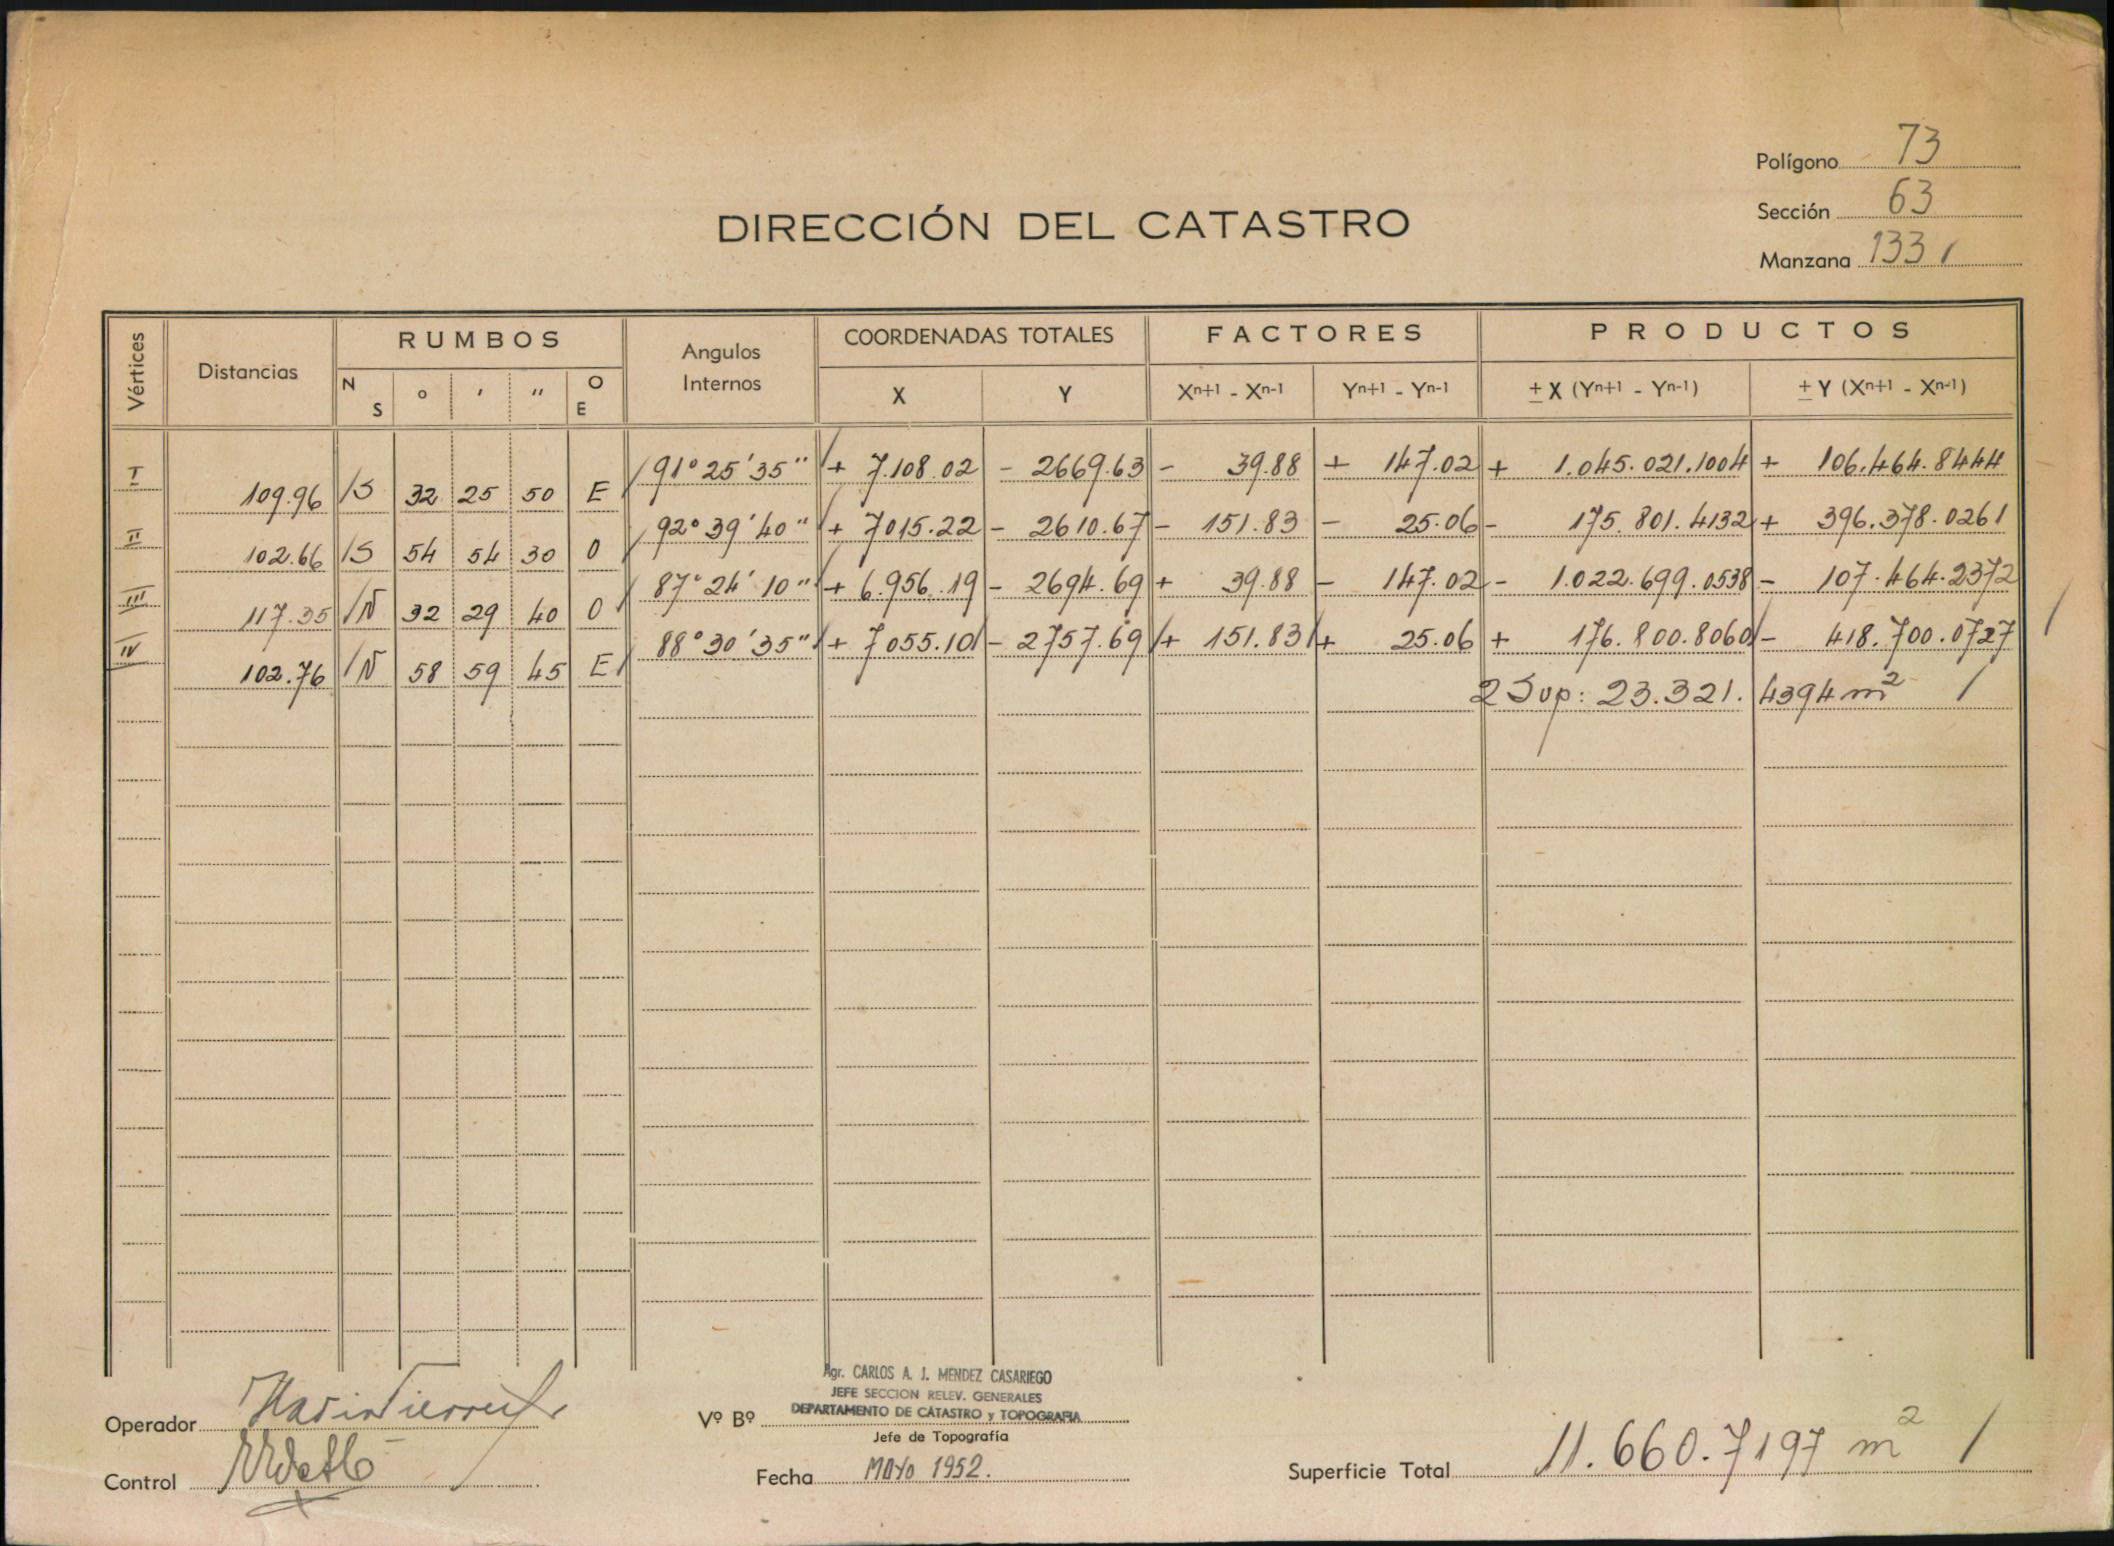 Polígono 73
Sección 63
Manzana 133 /
DIRECCIÓN DEL CATASTRO
Vértices Distancias RUMBOS Angulos Internos COORDENADAS TOTALES FACTORES PRODUCTOS
N S ° ' " O E X Y Xn+1 - Xn-1 Yn+1 - Yn-1 ± X (Yn+1 - Yn-1) ± Y (Xn+1 - Xn-1)
I 91° 25' 35" + 7.108.02 - 2669.63 - 39.88 + 147.02 + 1.045.021.1004 + 106.464.8444
109.96 S 32 25 50 E
II 92° 39' 40" + 7015.22 - 2610.67 - 151.83 - 25.06 - 175.801.4132 + 396.378.0261
102.66 S 54 54 30 O
III 87° 24' 10" + 6.956.19 - 2694.69 + 39.88 - 147.02 - 1.022.699.0538 - 107.464.2372
117.35 N 32 29 40 O
IV 88° 30' 35" + 7055.10 - 2757.69 + 151.83 + 25.06 + 176.800.8060 - 418.700.0727
102.76 N 58 59 45 E
2 Sup: 23.321.4394 m² /
Agr. CARLOS A. J. MENDEZ CASARIEGO
JEFE SECCION RELEV. GENERALES
DEPARTAMENTO DE CATASTRO y TOPOGRAFIA
Operador
Vº Bº
Jefe de Topografía
Control
Fecha MAYO 1952.
Superficie Total 11.660.7197 m² /